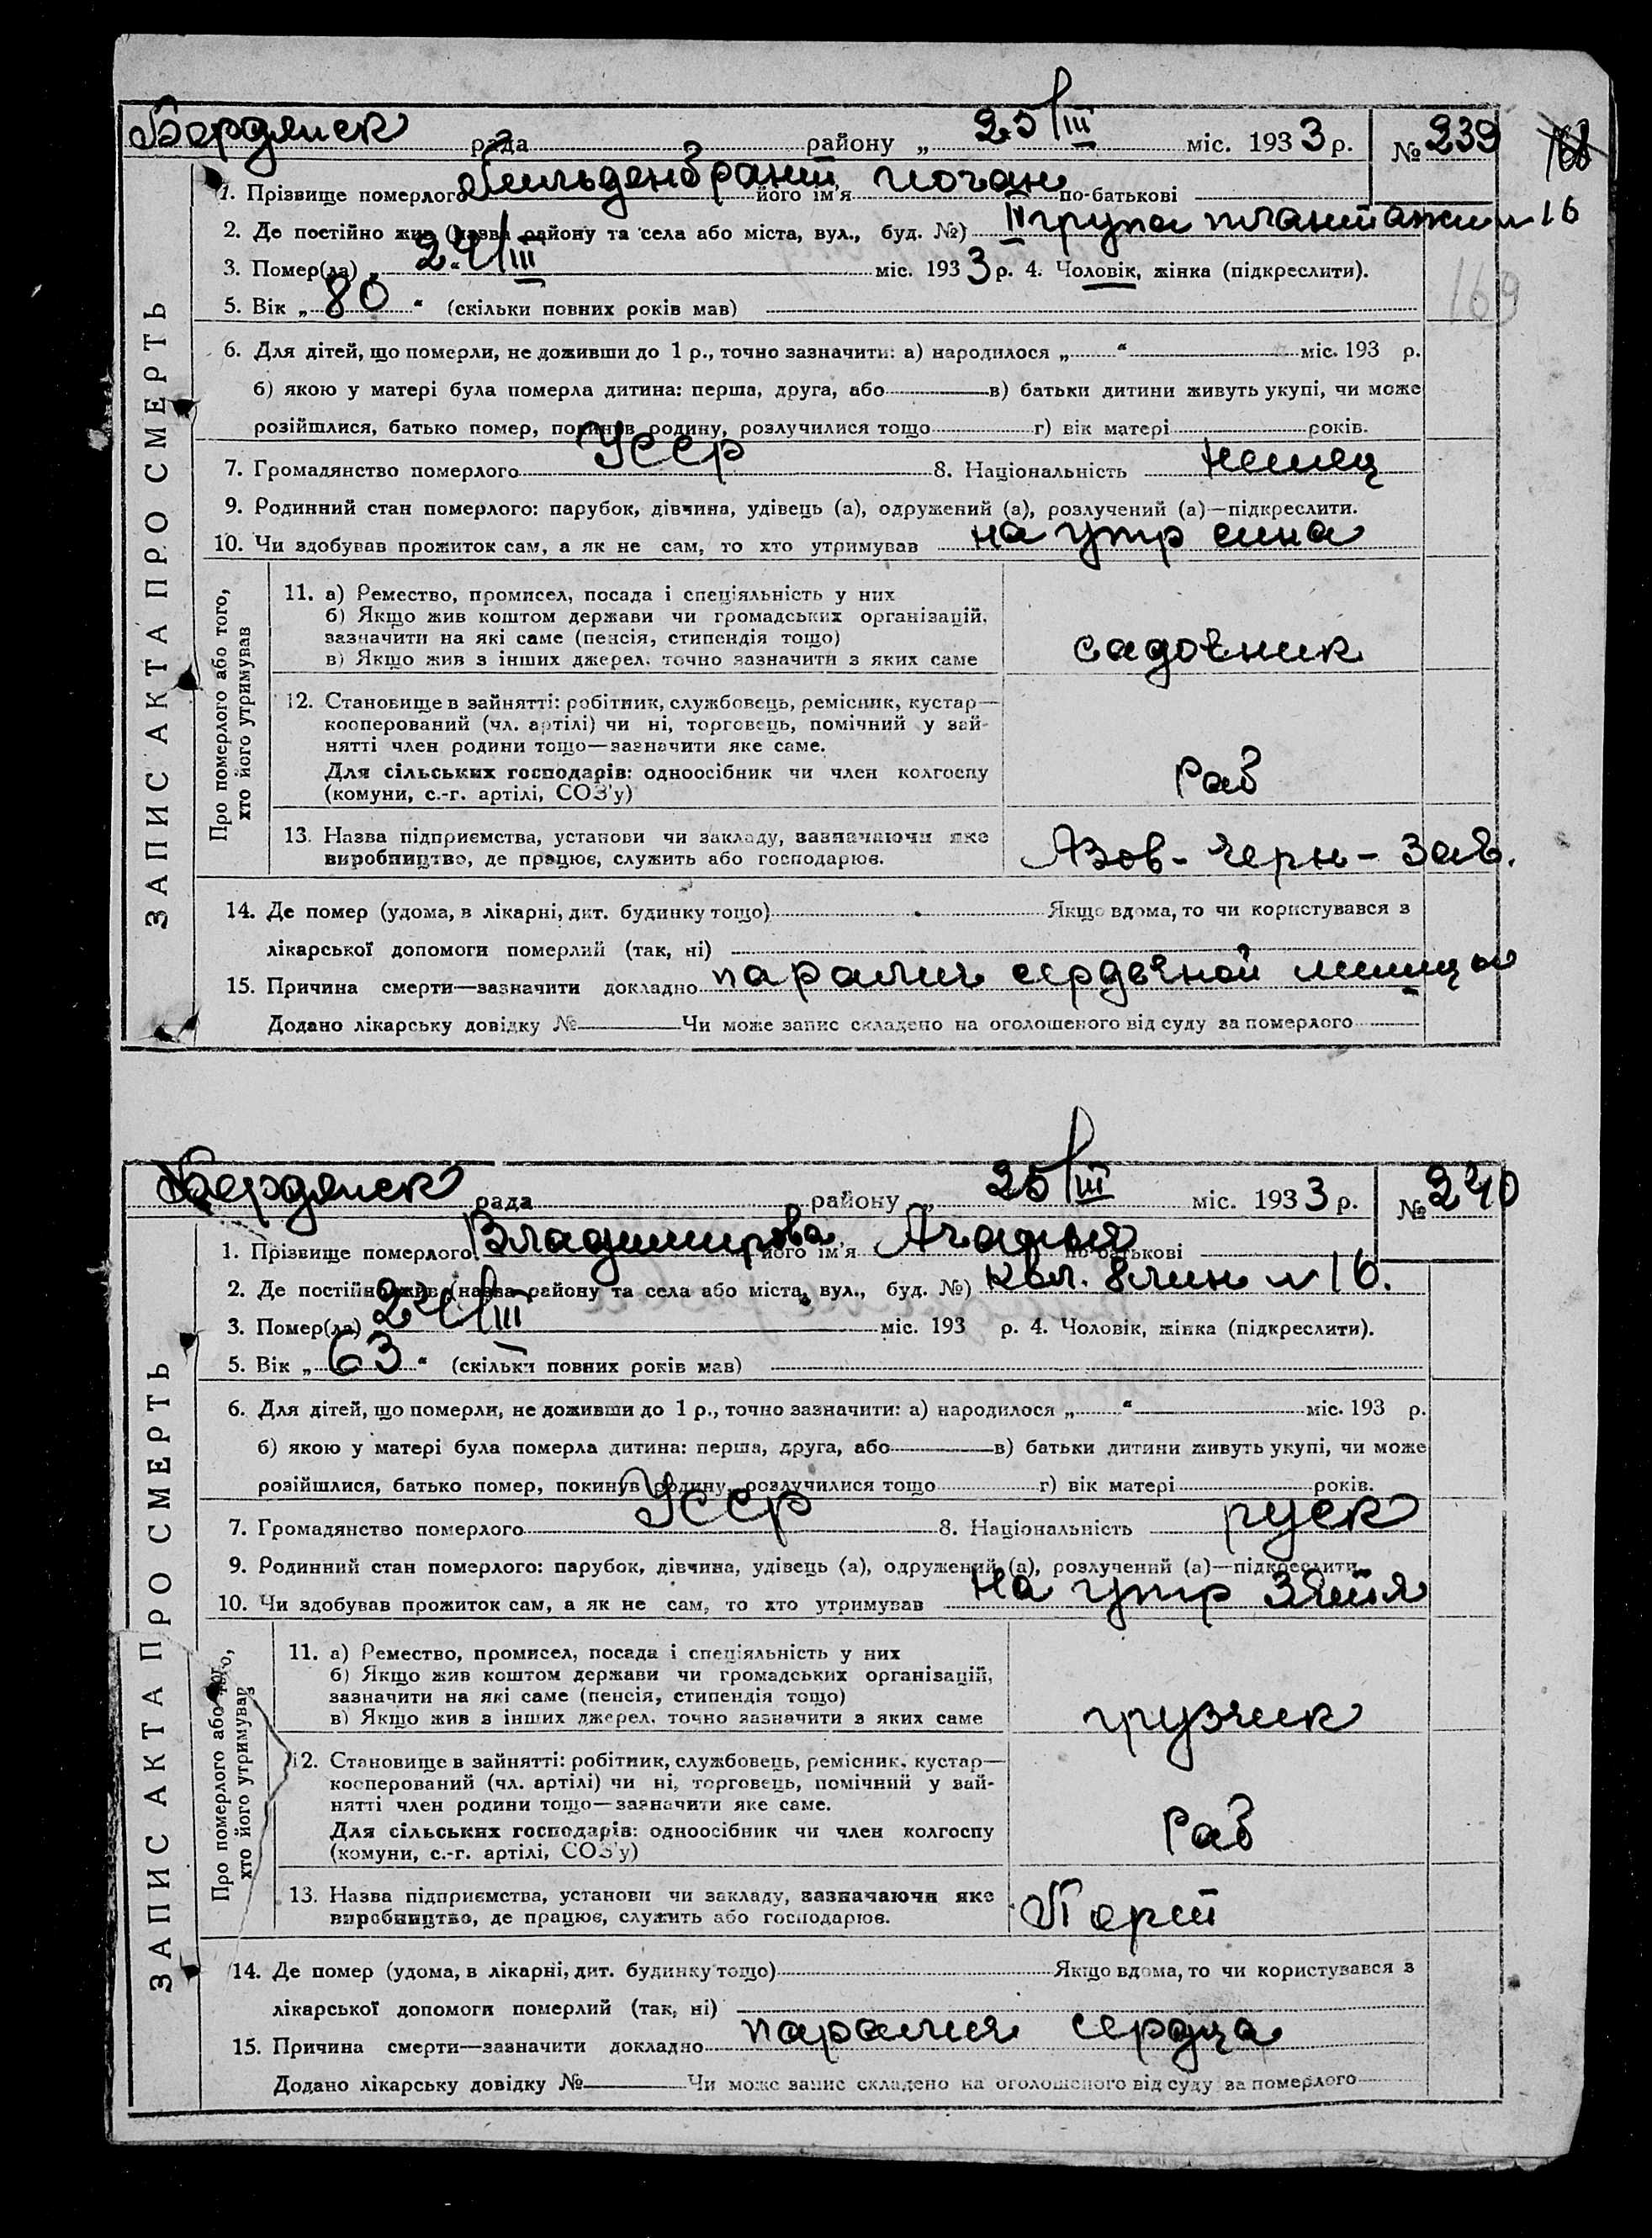 Бердянск рада района „ 25/III міс. 1933 р. № 239
1. Прізвище померлого Гильденбрант його ім'я Иоган по-батькові
2. Де постійно жив (назва району та села або міста, вул., буд. №) IV група плантажи 16
3. Помер(ла) „ 24/III “ міс. 1933 р. 4. Чоловік, жінка (підкреслити).
169
5. Вік „ 80 “ (скільки повних років мав)
6. Для дітей, що померли, не доживши до 1 р., точно зазначити: а) народилося „ “ міс. 193 р.
б) якою у матері була померла дитина: перша, друга, або в) батьки дитини живуть укупі, чи може
розійшлися, батько помер, покинув родину, розлучилися тощо г) вік матері років.
7. Громадянство померлого УССР 8. Національність немец
9. Родинний стан померлого: парубок, дівчина, удівець (а), одружений (а), розлучений (а)—підкреслити.
10. Чи здобував прожиток сам, а як не сам, то хто утримував на утр сина
ЗАПИС АКТА ПРО СМЕРТЬ
Про померлого або того,
хто його утримував
11. а) Ремество, промисел, посада і спеціяльність у них
б) Якщо жив коштом держави чи громадських організацій,
зазначити на які саме (пенсія, стипендія тощо)
в) Якщо жив з інших джерел, точно зазначити з яких саме
садовник
12. Становище в зайнятті: робітник, службовець, ремісник, кустар—
кооперований (чл. артілі) чи ні, торговець, помічний у зай-
нятті член родини тощо—зазначити яке саме.
Для сільських господарів: одноосібник чи член колгоспу
(комуни, с.-г. артілі, СОЗ'у)
Раб
13. Назва підприємства, установи чи закладу, зазначаючи яке
виробництво, де працює, служить або господарює.
Азов-Черн-Зав.
14. Де помер (удома, в лікарні, дит. будинку тощо) Якщо вдома, то чи користувався з
лікарської допомоги померлий (так, ні)
15. Причина смерти—зазначити докладно паралич сердечной мишцы
Додано лікарську довідку № Чи може запис складено на оголошеного від суду за померлого
Бердянск рада району „ 25/III міс. 1933 р. № 240
1. Прізвище померлого Владимирова його ім'я Агафья по-батькові
2. Де постійно жив (назва району та села або міста, вул., буд. №) Кол. 8 лин № 16.
3. Помер(ла) 24/III міс. 193 р. 4. Чоловік, жінка (підкреслити).
5. Вік „ 63 “ (скільки повних років мав)
6. Для дітей, що померли, не доживши до 1 р., точно зазначити: а) народилося „ “ міс. 193 р.
б) якою у матері була померла дитина: перша, друга, або в) батьки дитини живуть укупі, чи може
розійшлися, батько помер, покинув родину, розлучилися тощо г) вік матері років.
7. Громадянство померлого УССР 8. Національність руск
9. Родинний стан померлого: парубок, дівчина, удівець (а), одружений (а), розлучений (а)—підкреслити.
10. Чи здобував прожиток сам, а як не сам, то хто утримував на утр зятя
ЗАПИС АКТА ПРО СМЕРТЬ
Про померлого або того,
хто його утримував
11. а) Ремество, промисел, посада і спеціяльність у них
б) Якщо жив коштом держави чи громадських організацій,
зазначити на які саме (пенсія, стипендія тощо)
в) Якщо жив з інших джерел, точно зазначити з яких саме
грузчик
12. Становище в зайнятті: робітник, службовець, ремісник, кустар—
кооперований (чл. артілі) чи ні, торговець, помічний у зай-
нятті член родини тощо—зазначити яке саме.
Для сільських господарів: одноосібник чи член колгоспу
(комуни, с.-г. артілі, СОЗ'у)
Раб
13. Назва підприємства, установи чи закладу, зазначаючи яке
виробництво, де працює, служить або господарює.
Порт
14. Де помер (удома, в лікарні, дит. будинку тощо) Якщо вдома, то чи користувався з
лікарської допомоги померлий (так, ні)
15. Причина смерти—зазначити докладно паралич сердца
Додано лікарську довідку № Чи може запис складено на оголошеного від суду за померлого